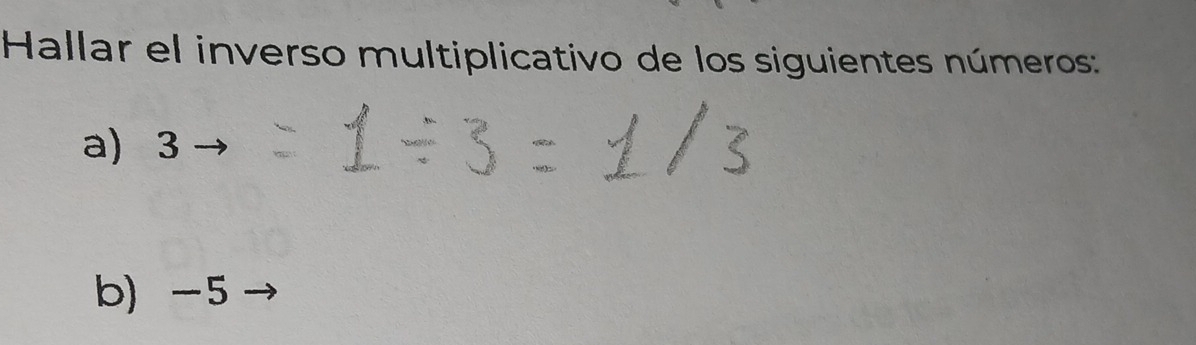 Hallar el inverso multiplicativo de los siguientes números:
a) 3 → = 1 ÷ 3 = 1/3
b) −5 →